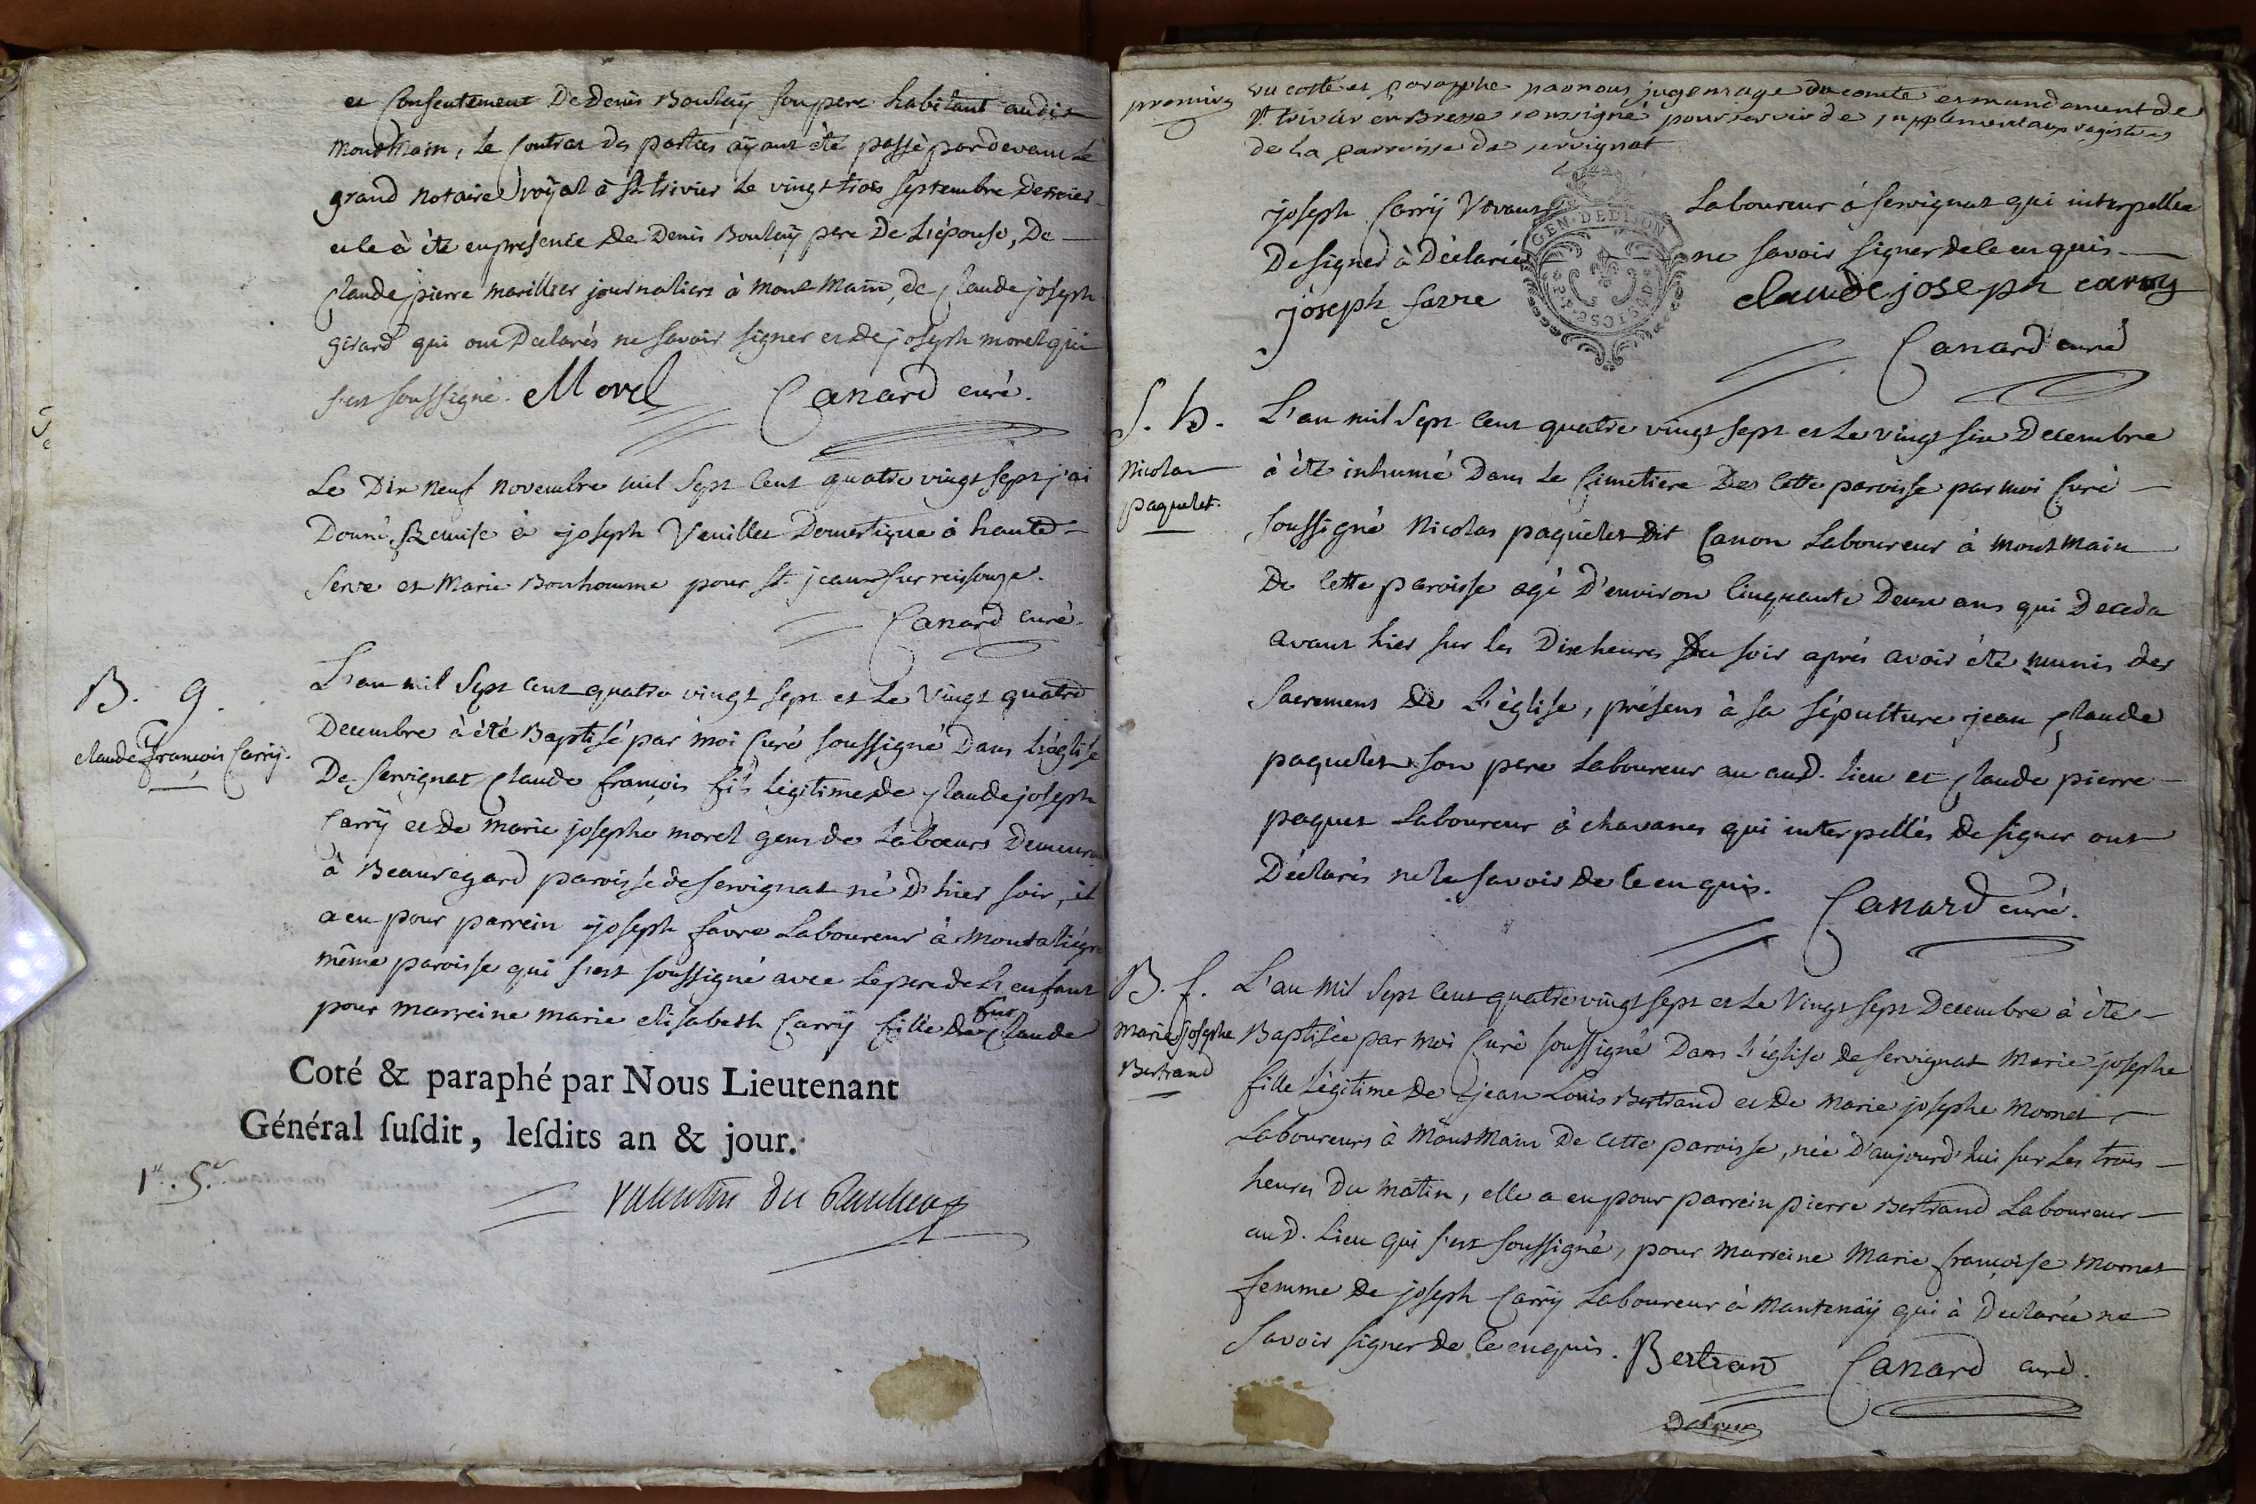 et Consentement De Denis Boulaÿ son pere habitant audit
MontMain, le Contrat des parties aÿant été passé pardevant Le
grand Notaire roÿal à St trivier le vingt trois septembre dernier
ce à été en presence de Denis Boulaÿ pere De L'épouse, De
Claude pierre marillier journaliers à Mont Main, de Claude joseph
girard qui ont Declarés ne savoir signer et de joseph morel qui
s'est soussigné. Morel Canard curé.
Le Dix Neuf novembre mil Sept Cent quatre vingt sept j'ai
Donné Remise à joseph Veuillet Domestique à haute
Serve et Marie Bonhomme pour St. jean sur reissouze.
Canard curé.
B. g.
claude françois Carrÿ.
L'an mil Sept cent quatre vingt sept et Le Vingt quatre
Decembre à été Baptisé par moi Curé soussigné Dans L'église
De Servignat Claude françois fils Légitime de Claude joseph
Carrÿ et de Marie josephe morel gens de Labeurs Demeurant
à Beauregard paroisse de servignat né d'hier soir, il
a eu pour parrein joseph favre Laboureur à Montaliegre
même paroisse qui s'est soussigné avec le pere de L'enfant
pour marreine marie elisabeth Carrÿ fille de feu Claude
Coté & paraphé par Nous Lieutenant
Général ſuſdit, leſdits an & jour.
1er. 5.
Valentin du
premier
vu cotté et paraphe par nous juge mage du comté et mandement de
St. trivier en Bresse soussigné pour servir de supplement aux registres
de la parroisse de servignat
GEN. DE DIJON
joseph Carrÿ Vivant Laboureur à Servignat qui interpellée
De signer à Déclaré ne savoir signer de ce enquis.
joseph favre claude joseph carry
Canard curé
S. h.
Nicolas
paquelet.
L'an mil Sept Cent quatre vingt sept et Le vingt six Decembre
à été inhumé Dans Le Cimetiere De cette paroisse par moi Curé
soussigné Nicolas paquelet dit Canon Laboureur à MontMain
De cette paroisse agé D'environ Cinquante Deux ans qui Deceda
avant hier sur les Dix heures Du soir aprés avoir été munis des
Sacremens de L'église, présens à sa sépulture jean Claude
paquelet son pere Laboureur au aud. lieu et Claude pierre
paquet Laboureur à chavanes qui interpellés de signer ont
Déclarés ne le savoir de ce enquis.
Canard curé.
B. f.
Marie josephe
Bertrand
L'an Mil Sept Cent quatre vingt sept et Le Vingt sept Decembre à été
Baptisée par Moi Curé soussigné Dans L'église de servignat Marie josephe
fille Légitime de jean Louis Bertrand et De Marie josephe Mornet
Laboureurs à MontMain De cette paroisse, née D'aujourd'hui sur Les trois
heures Du matin, elle a eu pour parrein pierre Bertrand Laboureur
aud. Lieu qui s'est soussigné, pour marreine Marie françoise Mornet
femme de joseph Carrÿ Laboureur à Mantenaÿ qui à Déclarée ne
savoir signer de ce enquis. Bertrand Canard curé.